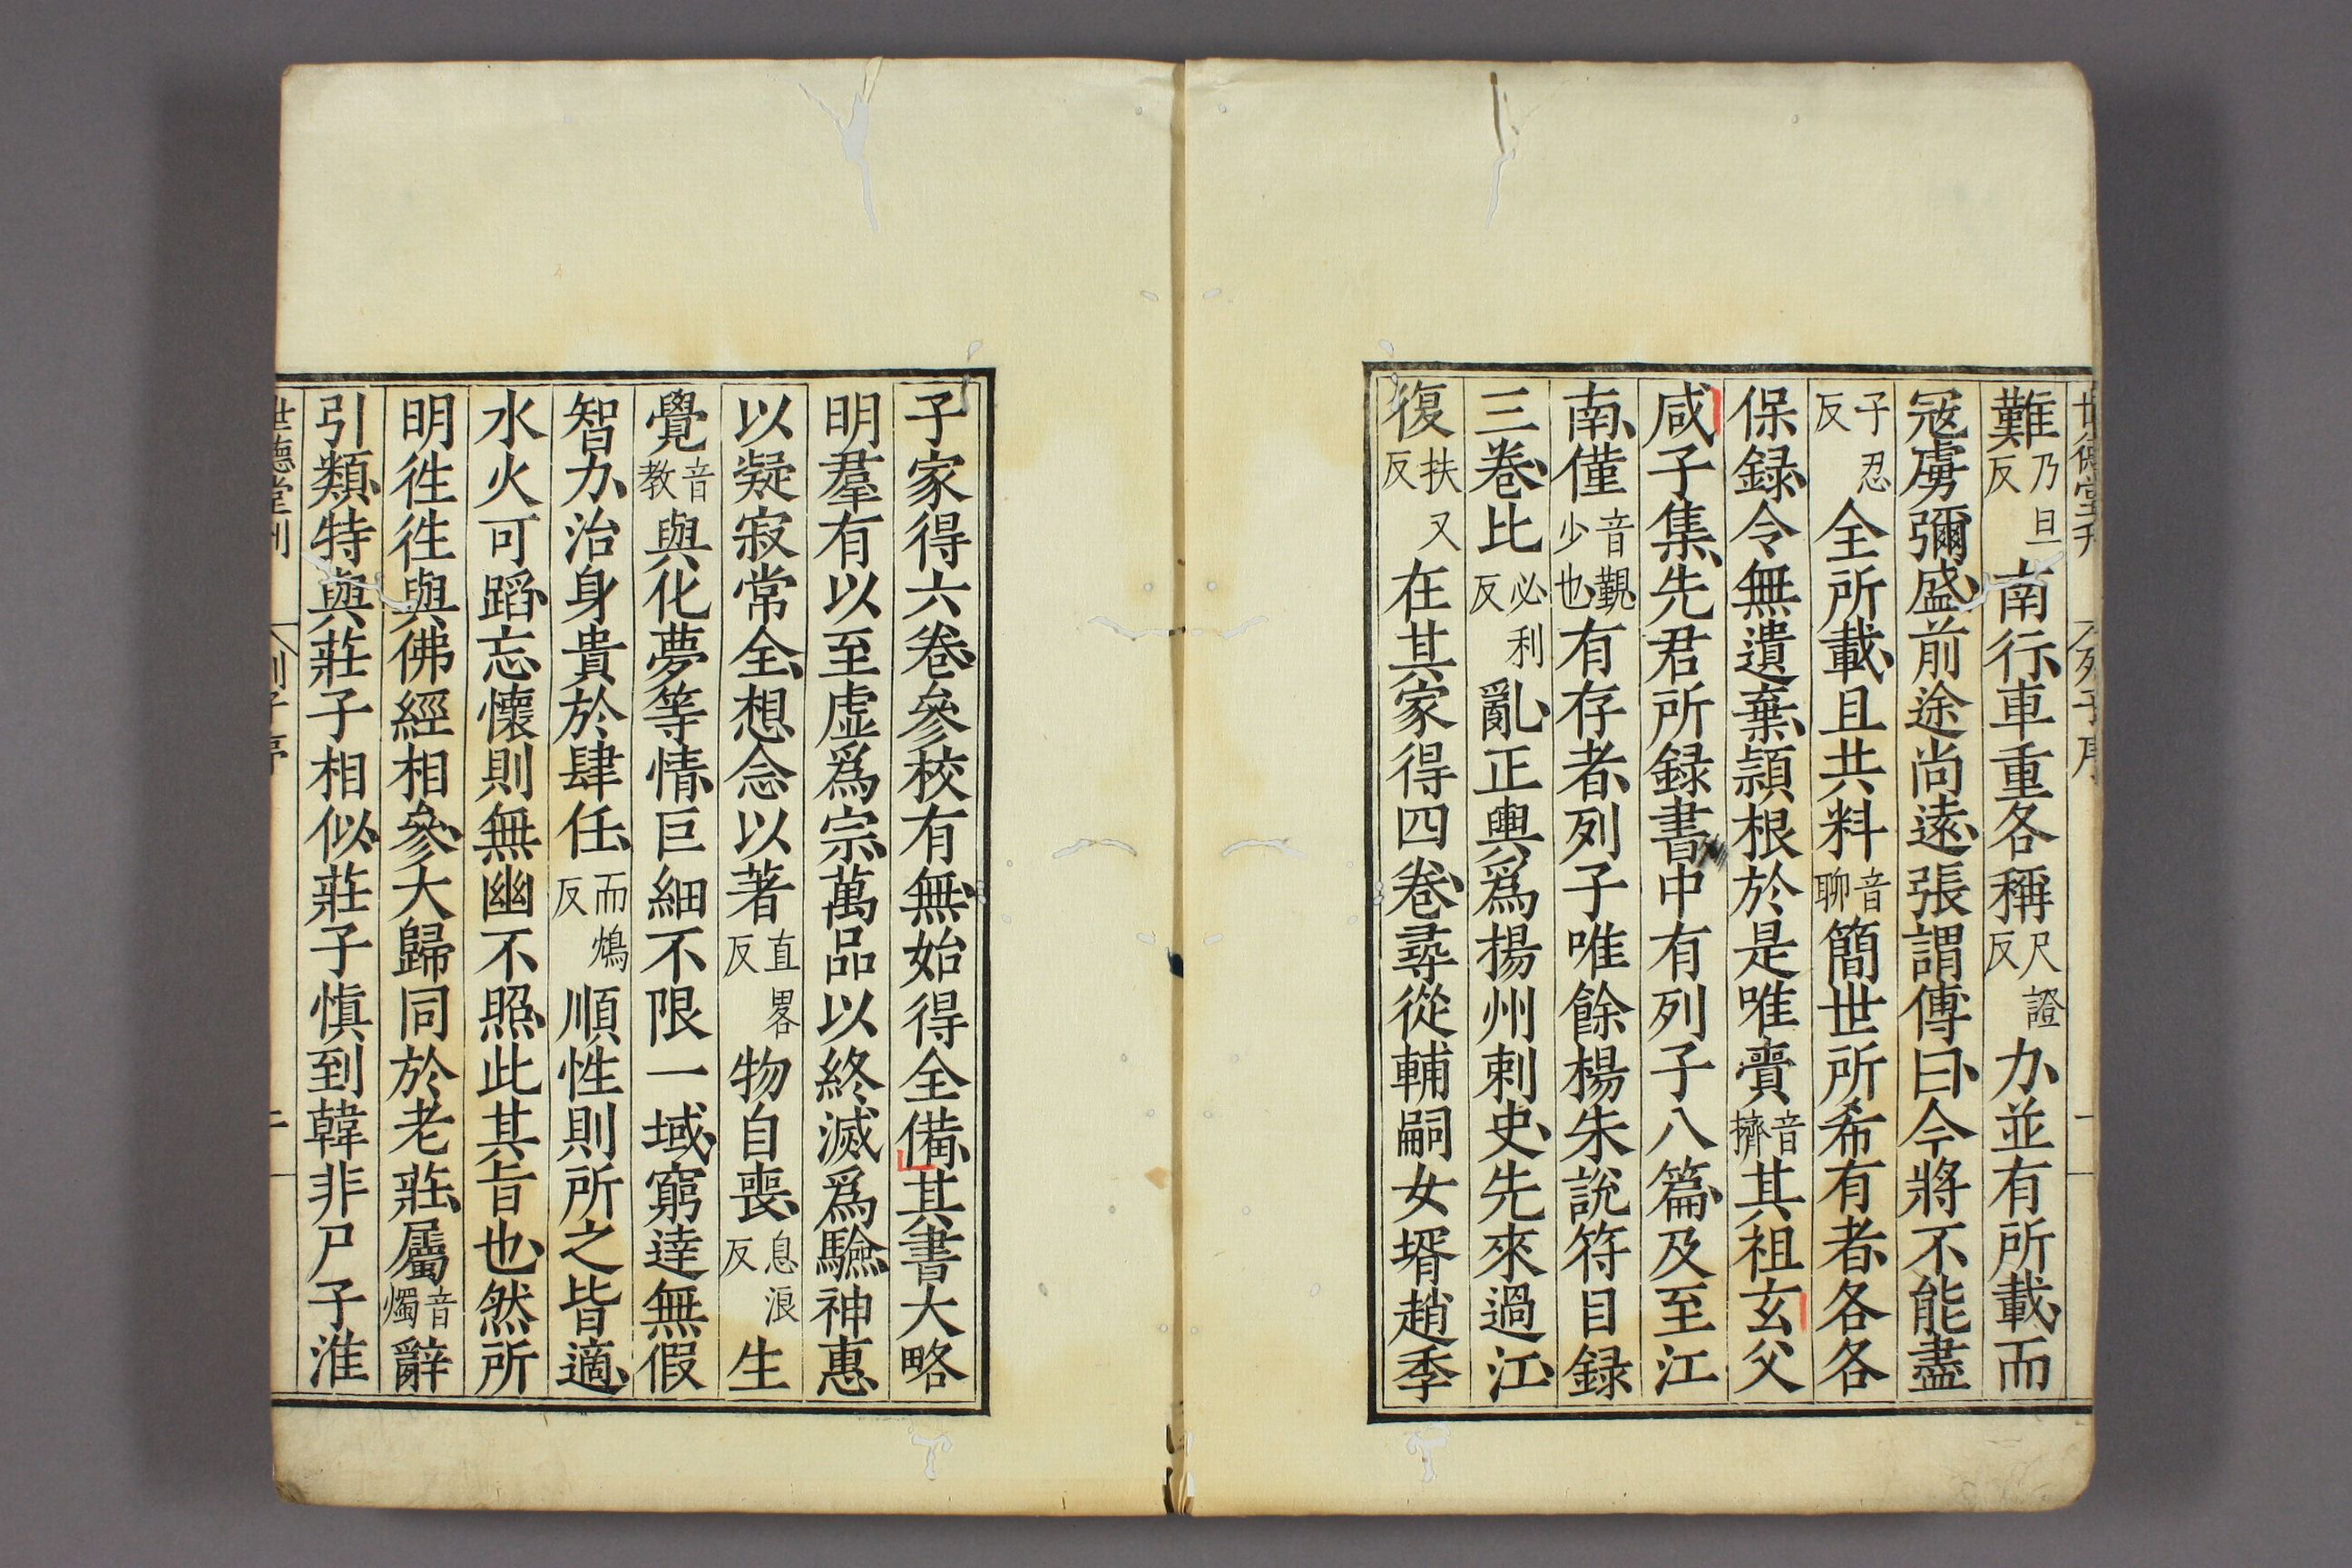 世德堂刊 列子序 一
難乃旦反南行車重各稱尺證反力並有所載而
寇虜彌盛前途尚遠張謂傅曰今將不能盡
子忍反全所載且共料音聊簡世所希有者各各
保録令無遺棄潁根於是唯賷音擠其祖玄父
咸子集先君所録書中有列子八篇及至江
南僅音覲少也有存者列子唯餘楊朱說符目録
三卷比必利反亂正輿爲揚州刺史先來過江
復扶又反在其家得四卷尋從輔嗣女壻趙季
子家得六卷參校有無始得全備其書大略
明羣有以至虛爲宗萬品以終滅爲驗神惠
以凝寂常全想念以著直畧反物自喪息浪反生
覺音教與化夢等情巨細不限一域窮達無假
智力治身貴於肆任而鴆反順性則所之皆適
水火可蹈忘懷則無幽不照此其旨也然所
明徃徃與佛經相參大歸同於老莊屬音燭辭
引類特與莊子相似莊子慎到韓非尸子淮
世德堂刊 列子序 二